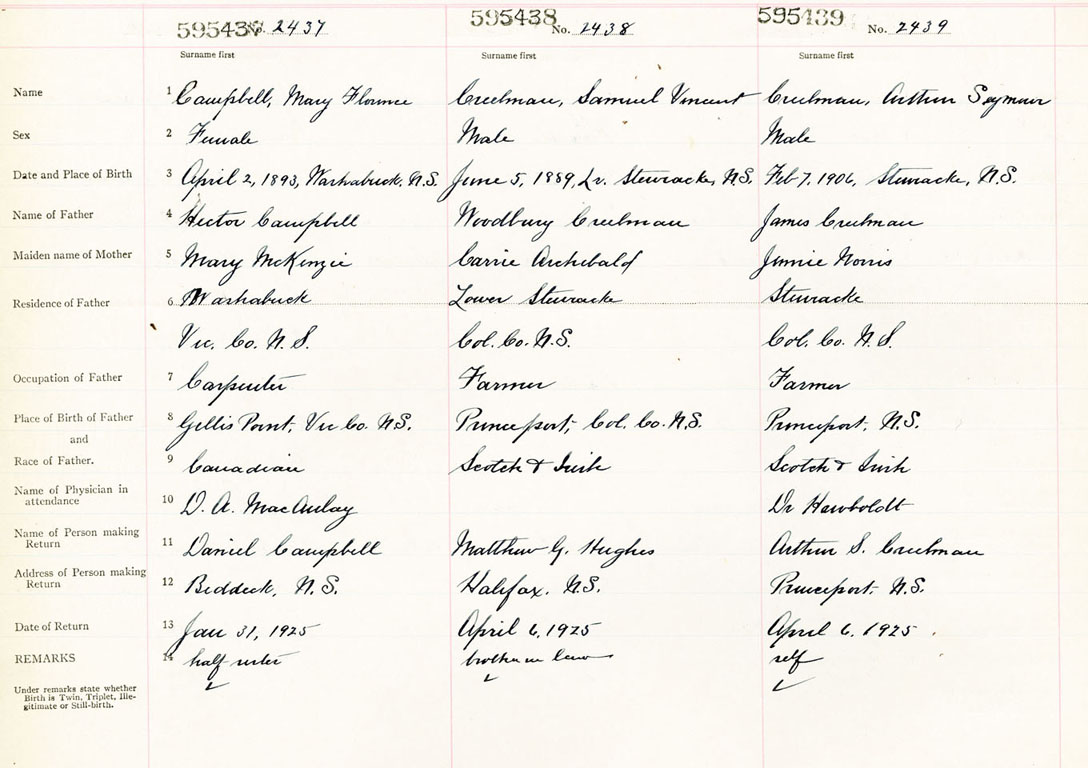 595437 No. 2437 595438 No. 2438 595439 No. 2439
Surname first Surname first Surname first
Name 1 Campbell, Mary Florence Creelman, Samuel Vincent Creelman, Arthur Seymour
Sex 2 Female Male Male
Date and Place of Birth 3 April 2, 1893, Washabuck, N.S. June 5, 1889, Lr. Stewiacke, N.S. Feb 7, 1906, Stewiacke, N.S.
Name of Father 4 Hector Campbell Woodbury Creelman James Creelman
Maiden name of Mother 5 Mary McKenzie Carrie Archibald Jennie Norris
Residence of Father 6 Washabuck Lower Stewiacke Stewiacke
Vic. Co. N.S. Col. Co. N.S. Col. Co. N.S.
Occupation of Father 7 Carpenter Farmer Farmer
Place of Birth of Father 8 Gillis Point, Vic Co. N.S. Princeport, Col. Co. N.S. Princeport, N.S.
and
Race of Father. 9 Canadian Scotch & Irish Scotch & Irish
Name of Physician in
attendance 10 D. A. MacAulay Dr
Name of Person making
Return 11 Daniel Campbell Matthew G. Hughes Arthur S. Creelman
Address of Person making
Return 12 Beddeck, N.S. Halifax, N.S. Princeport, N.S.
Date of Return 13 Jan 31, 1925 April 6, 1925 April 6, 1925
REMARKS 14 half sister brother in law self
Under remarks state whether
Birth is Twin, Triplet, Ille-
gitimate or Still-birth.